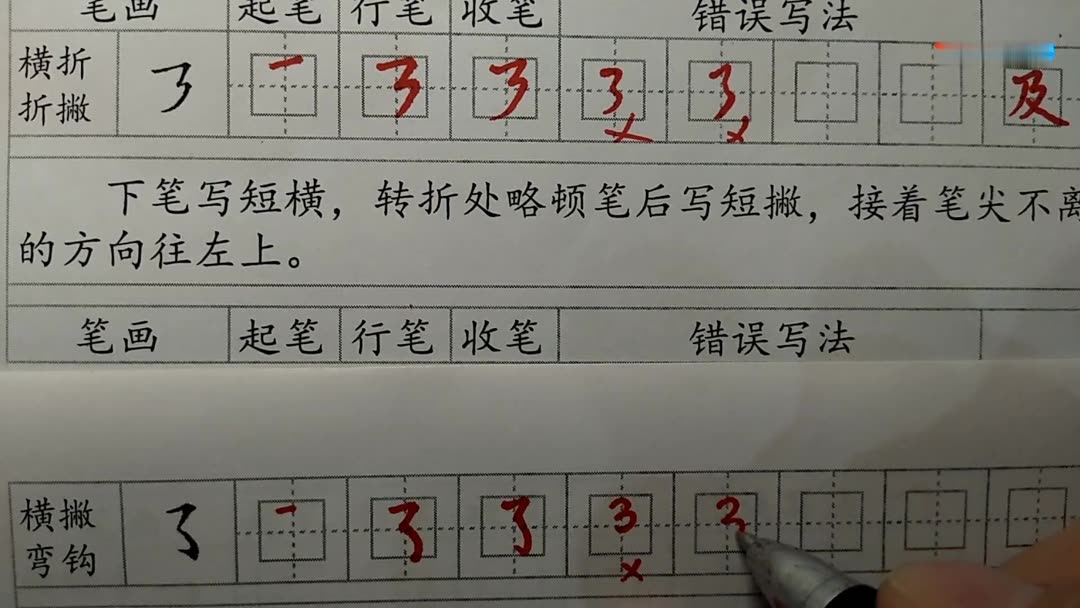 笔画 起笔 行笔 收笔 错误写法
横折
折撇 及
下笔写短横，转折处略顿笔后写短撇，接着笔尖不离
的方向往左上。
笔画 起笔 行笔 收笔 错误写法
横撇
弯钩